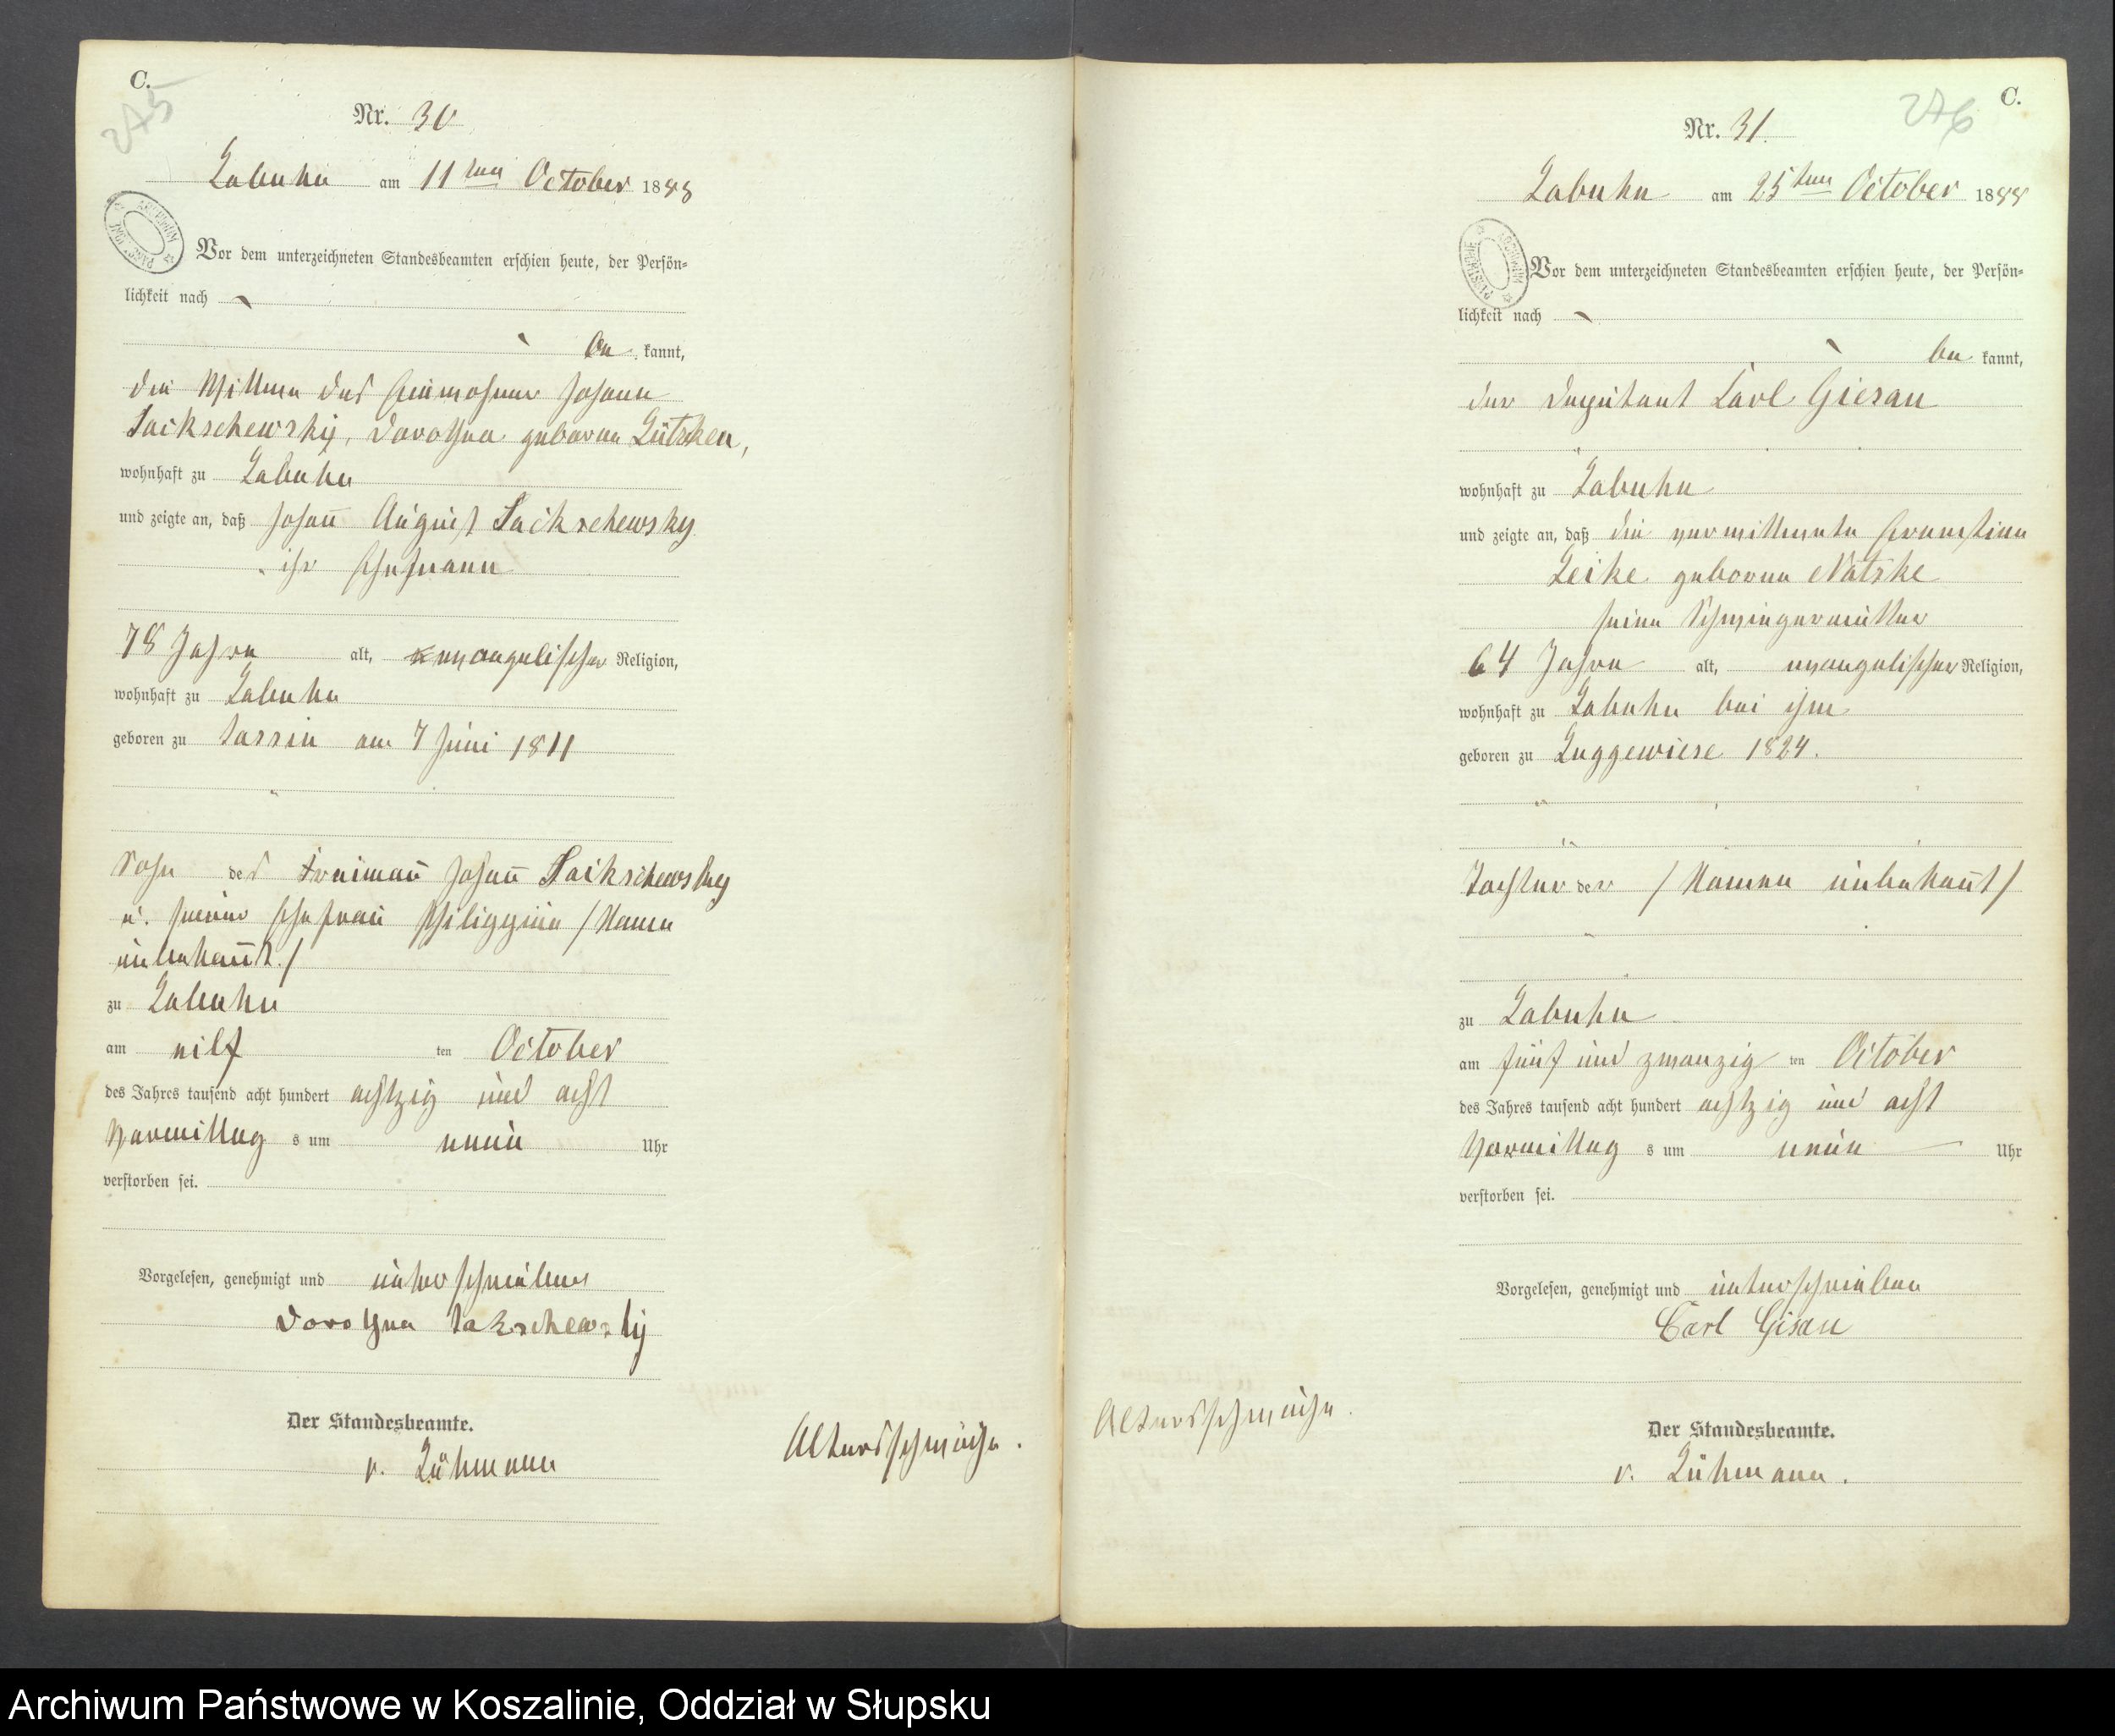 C.
275
Nr. 30
Labuhn am 11ten October 1888
Vor dem unterzeichneten Standesbeamten erschien heute, der Persön-
lichkeit nach
be kannt,
die Wittwe des Einwohner Johann
Sackschewsky, Dorothea geborne Lütsken,
wohnhaft zu Labuhn
und zeigte an, daß Johañ August Sackschewsky
ihr Ehemann
78 Jahre alt, evangelischer Religion,
wohnhaft zu Labuhn
geboren zu Sassin am 7 Juni 1811
Sohn des Freimañ Johañ Sackschewsky
u. seiner Ehefrau Philippine /Name
unbekañt./
zu Labuhn
am eilf ten October
des Jahres tausend acht hundert achtzig und acht
Vormittag s um neun Uhr
verstorben sei.
Vorgelesen, genehmigt und unterschrieben
Dorothea Sakschewsky
Der Standesbeamte.
v. Lühmann
Altersschwäche.
C.
276
Nr. 31.
Labuhn am 25ten October 1888
Vor dem unterzeichneten Standesbeamten erschien heute, der Persön-
lichkeit nach
be kannt,
der Deputant Carl Giesau
wohnhaft zu Labuhn
und zeigte an, daß die verwittwete Ernestine
Leike geborne Natzke
seine Schwiegermutter
64 Jahre alt, evangelischer Religion,
wohnhaft zu Labuhn bei ihm
geboren zu Luggewiese 1824.
Tochter der /Namen unbekañt/
zu Labuhn
am fünf und zwanzig ten October
des Jahres tausend acht hundert achtzig und acht
Vormittag s um neun Uhr
verstorben sei.
Vorgelesen, genehmigt und unterschrieben
Carl Gisau
Altersschwäche.
Der Standesbeamte.
v. Lühmann.
Archiwum Państwowe w Koszalinie, Oddział w Słupsku